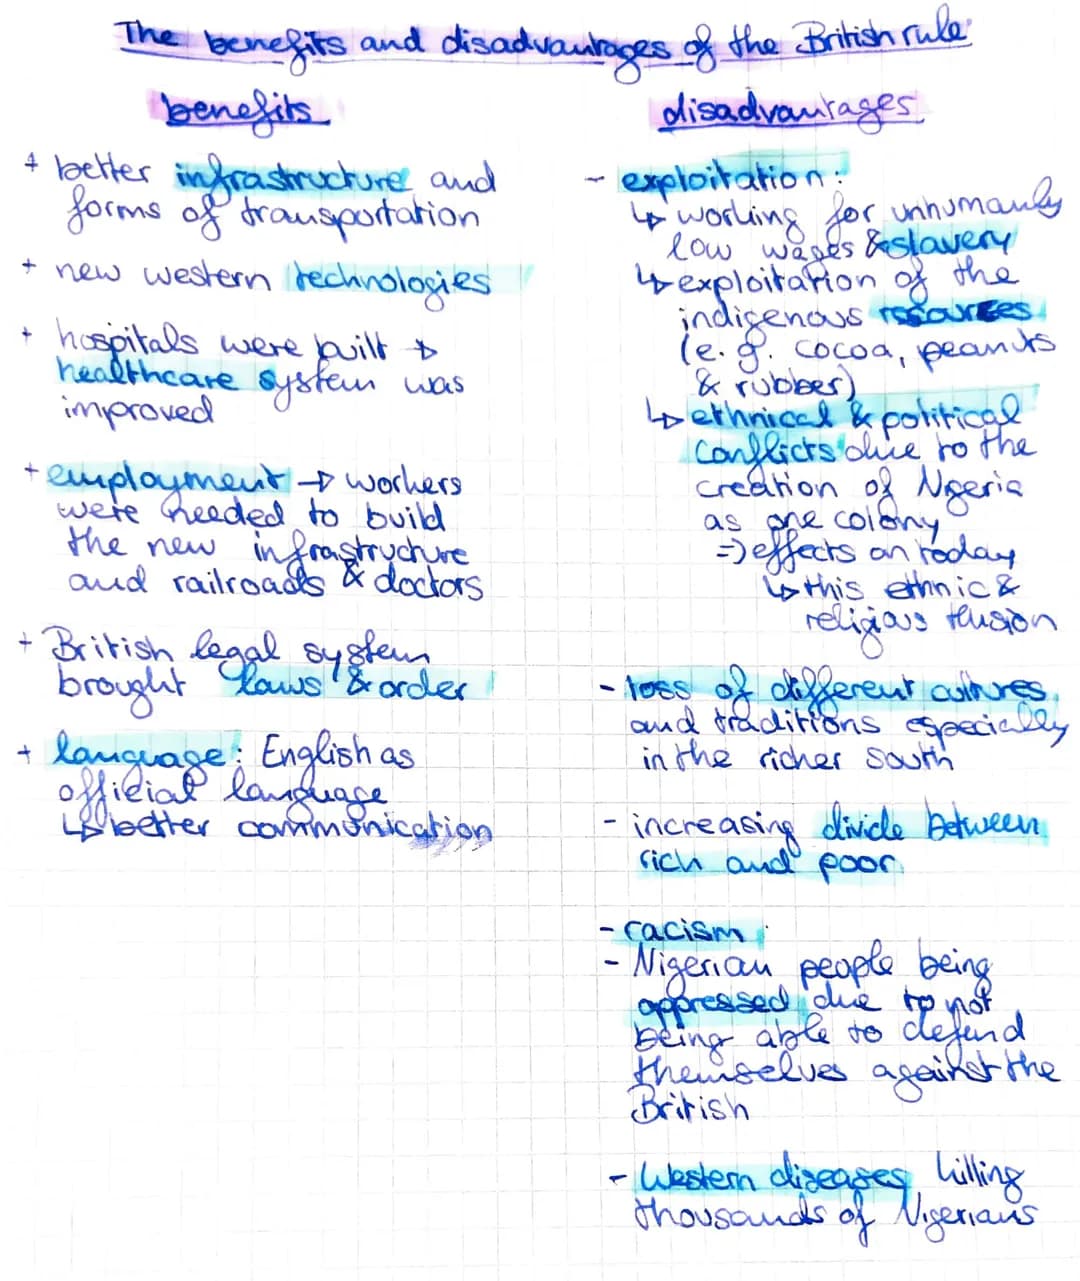 The benefits and disadvantages of the British rule
benefits
+ better infrastructure and
forms of transportation
+ new western technologies
+ hospitals were built →
healthcare system was
improved
+ employment → workers
were needed to build
the new infrastructure
and railroads & doctors
+ British legal system
brought laws & order
+ language: English as
official language
↳ better communication
disadvantages
- exploitation:
↳ working for unhumanly
low wages & slavery
↳ exploitation of the
indigenous resources
(e.g. cocoa, peanuts
& rubber)
↳ ethnical & political
conflicts due to the
creation of Nigeria
as one colony
=) effects on today
↳ this ethnic &
religious tension
- loss of different cultures
and traditions especially
in the richer south
- increasing divide between
rich and poor
- racism
- Nigerian people being
oppressed due to not
being able to defend
themselves against the
British
- Western diseases killing
thousands of Nigerians